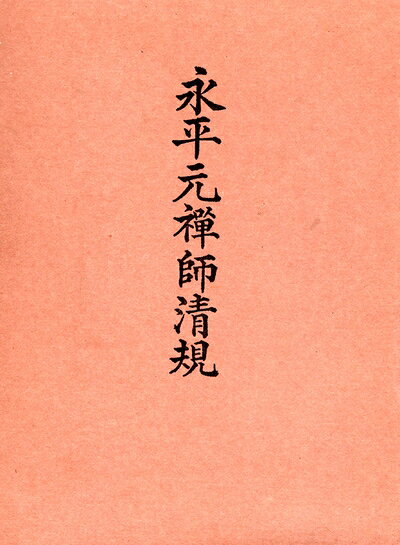 永平元禅師清規